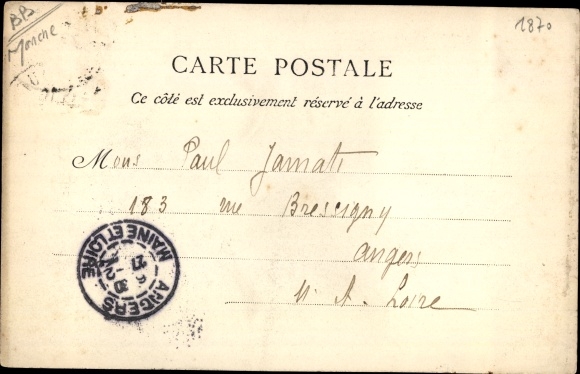 BB
Manche
1870
CARTE POSTALE
Ce côté est exclusivement réservé à l'adresse
Mons Paul Jamati
183 rue Bressigny
Angers
M. & Loire
ANGERS
MAINE ET LOIRE